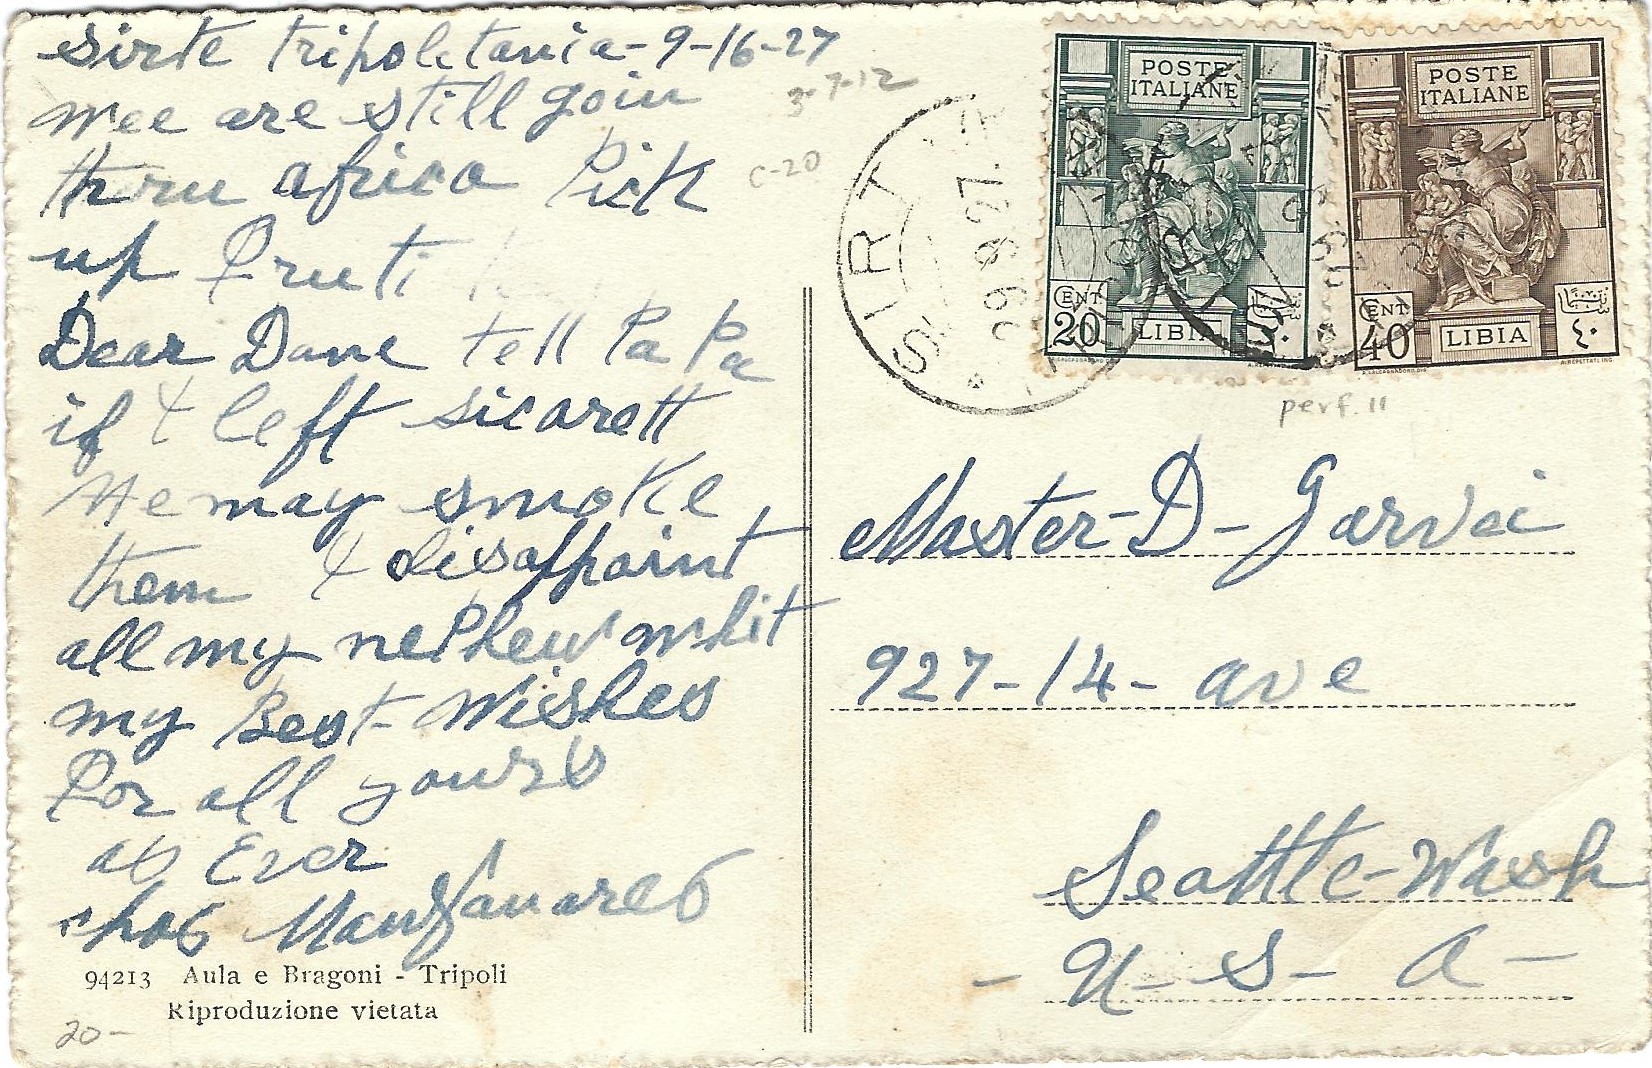 sirte tripoletania-9-16-27
wee are still goin
thru africa Pick
up Fruti
Dear Dane tell Papa
if I left sicarett
He may smoke
them & disappoint
all my nephew whit
my Best-Wishes
For all yours
as Ever
chas Manzanares
94213 Aula e Bragoni - Tripoli
Riproduzione vietata
20-
3-7-12
C-20
SIRT
27
POSTE
ITALIANE
CENT.
20
LIBIA
٢٠
POSTE
ITALIANE
CENT.
40
LIBIA
سنت
٤٠
perf. 11
Master-D-Garvei
927-14-ave
Seattle-Wash
- U-S-A-